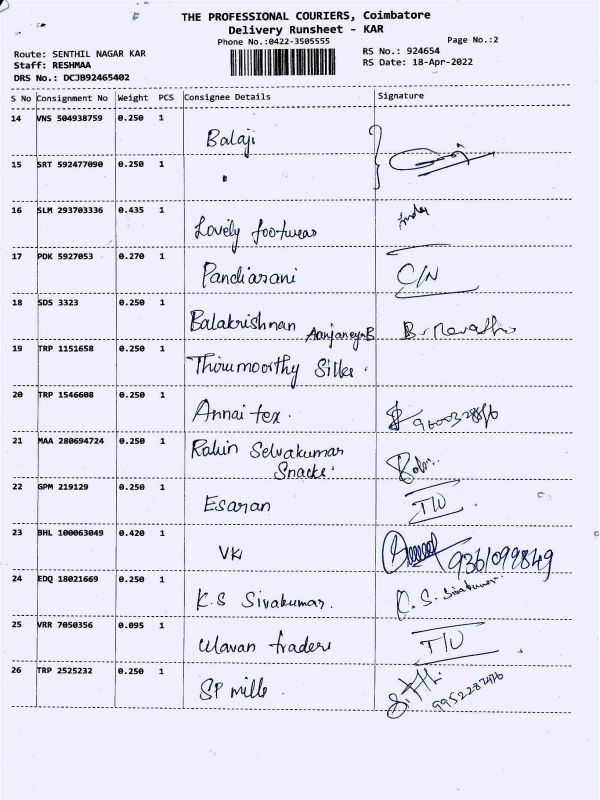 THE PROFESSIONAL COURIERS, Coimbatore
Delivery Runsheet - KAR
Phone No.:0422-3505555
Page No.:2
Route: SENTHIL NAGAR KAR
RS No.: 924654
Staff: RESHMAA
RS Date: 18-Apr-2022
DRS No.: DCJB92465402
S No Consignment No Weight PCS Consignee Details Signature
14 VNS 504938759 0.250 1 Balaji
15 SRT 592477090 0.250 1 "
16 SLM 293703336 0.435 1 Lovely footwear
17 PDK 5927053 0.270 1 Pandiarani C/N
18 SDS 3323 0.250 1 Balakrishnan Aanjaneya B B. Revathi
19 TRP 1151658 0.250 1 Thirumoorthy Silks.
20 TRP 1546608 0.250 1 Annai tex.
21 MAA 280694724 0.250 1 Rahin Selvakumar
Snacks.
22 GPM 219129 0.250 1 Esaran
23 BHL 100063049 0.420 1 VKI 9361099849
24 EDQ 18021669 0.250 1 K.S Sivakumar. K. S. Sivakumar
25 VRR 7050356 0.095 1 Ulavan traders
26 TRP 2525232 0.250 1 SP mills. 9952287476